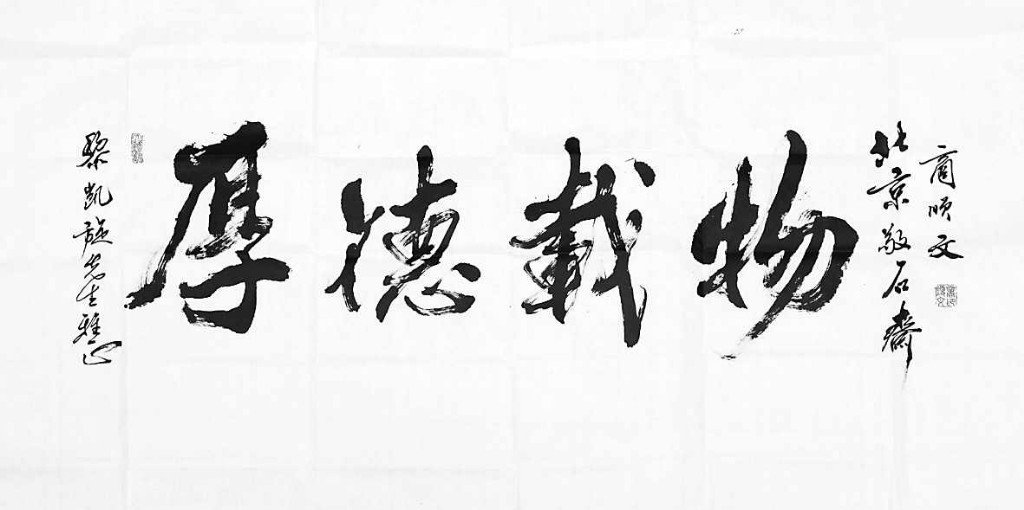 黎凯旋先生雅正
厚德載物
北京敬石齋
商顺文